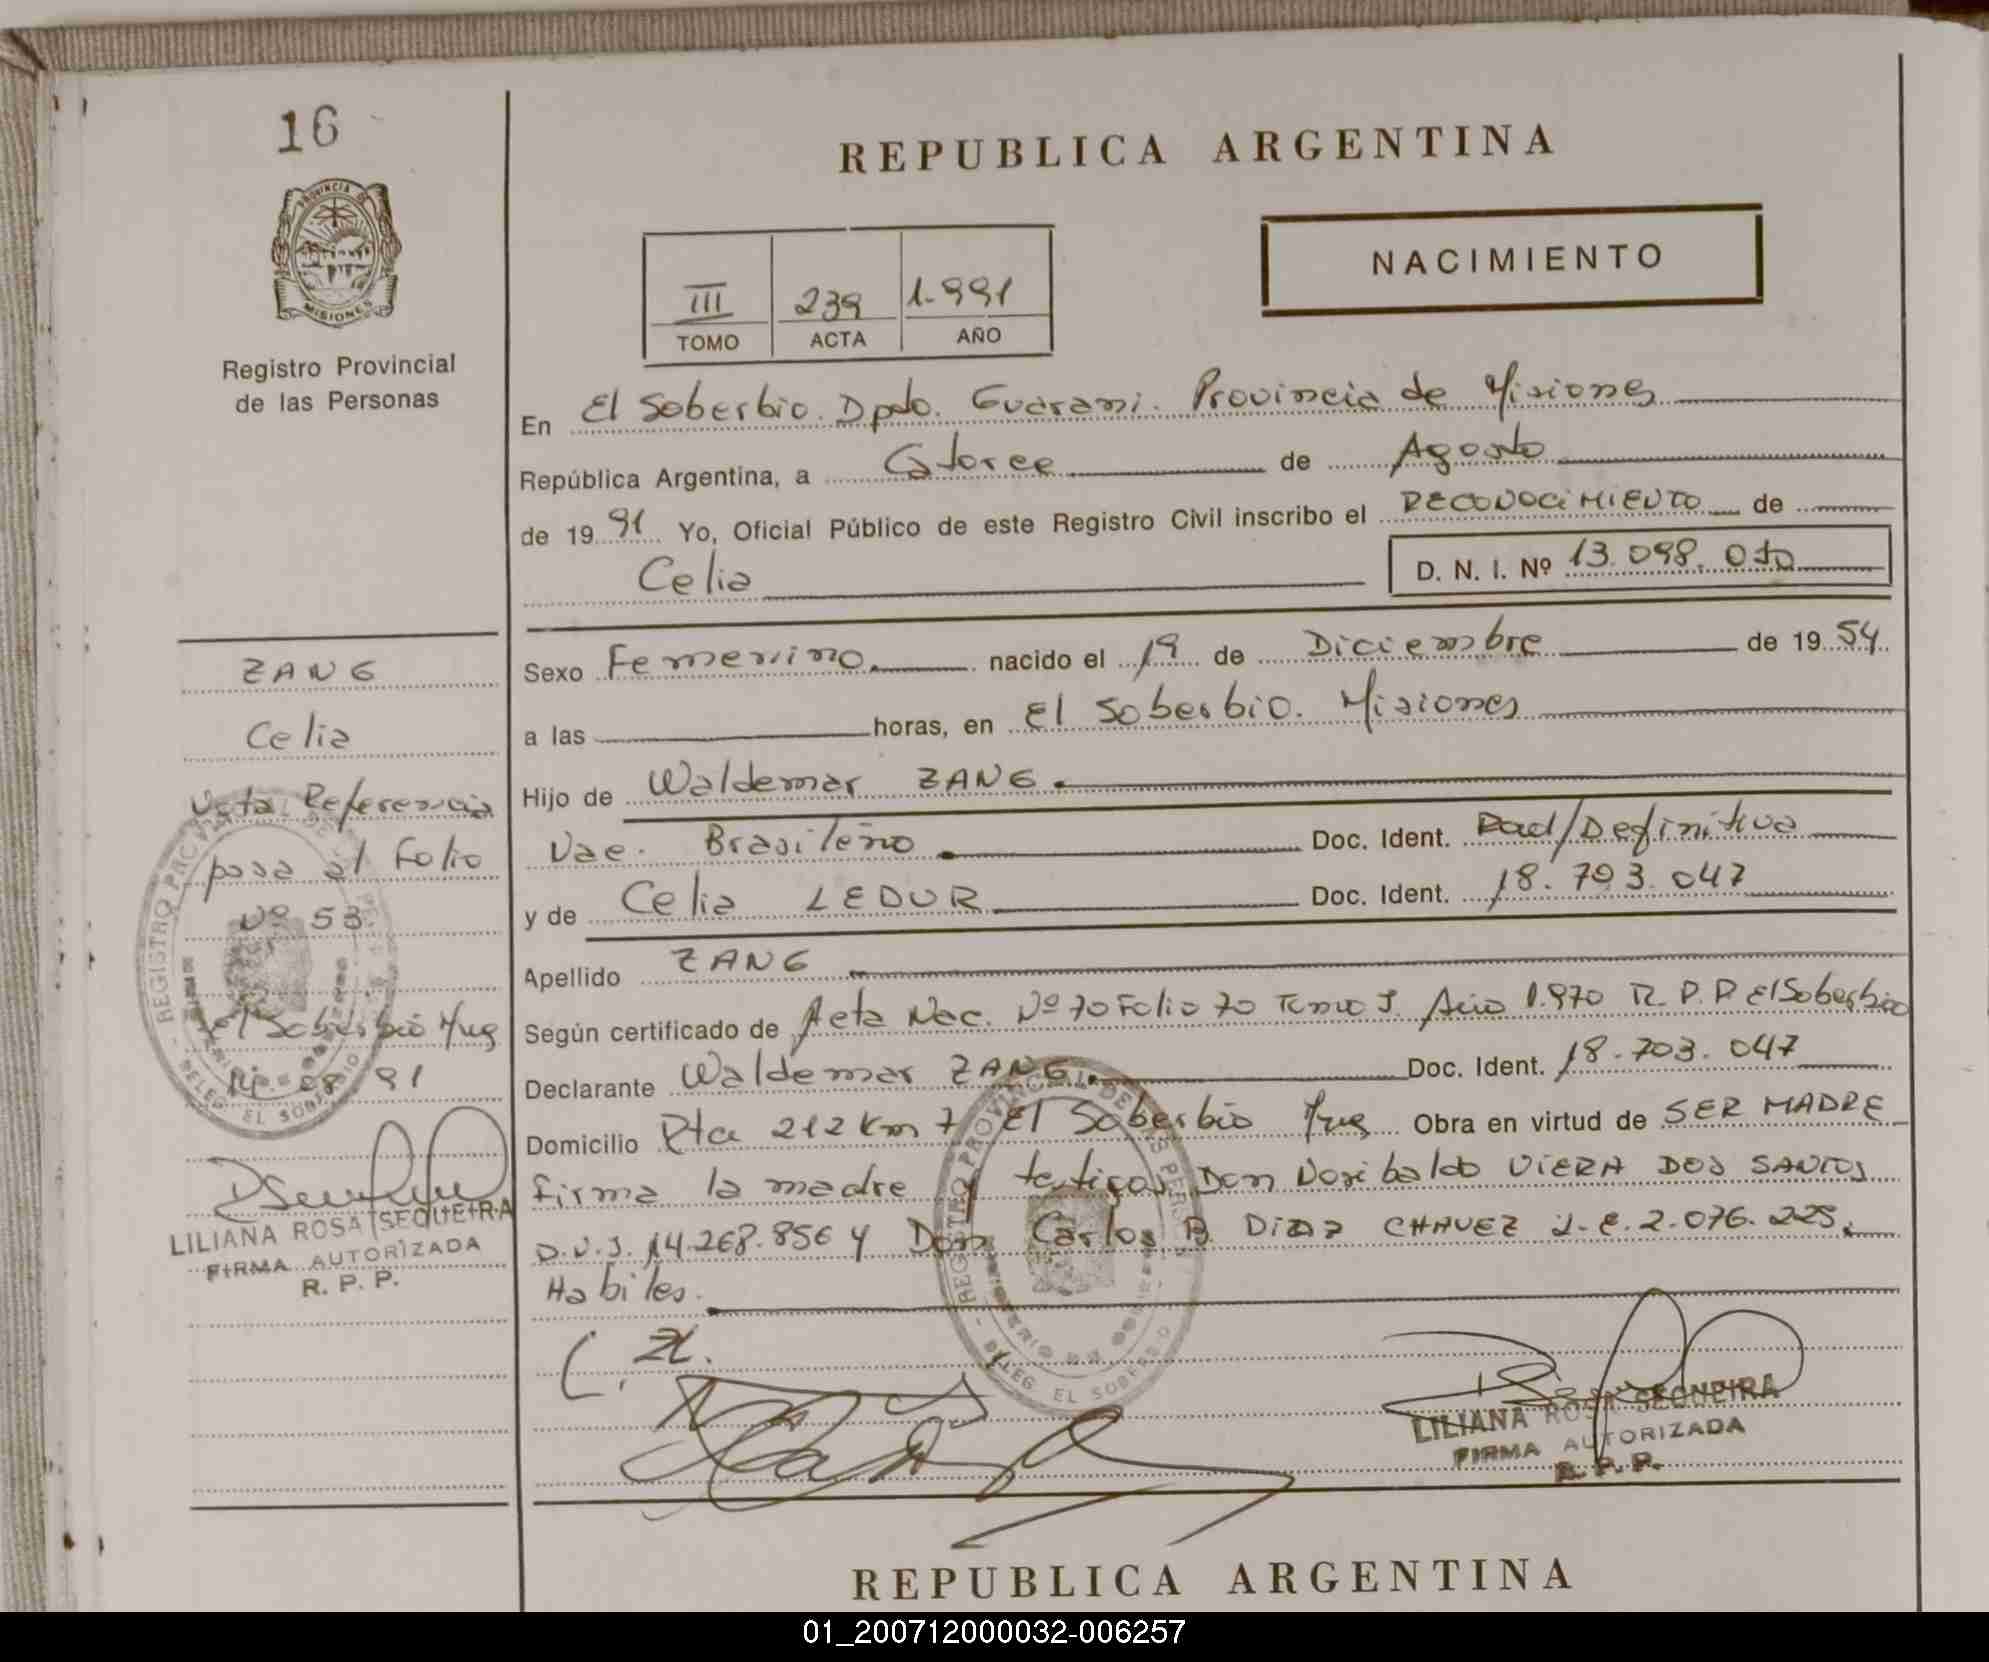 16
PROVINCIA DE
MISIONES
Registro Provincial
de las Personas
REPUBLICA ARGENTINA
NACIMIENTO
III 239 1.991
TOMO ACTA AÑO
En El Soberbio. Dpdo. Guarani. Provincia de Misiones
República Argentina, a Catorce de Agosto
de 19 91 Yo, Oficial Público de este Registro Civil inscribo el RECONOCIMIENTO de
Celia D. N. I. Nº 13.098.010
Sexo Femenino. nacido el 19 de Diciembre de 19 54
a las horas, en El Soberbio. Misiones
Hijo de Waldemar ZANG.
Nac. Brasileño. Doc. Ident. Rad/Definitiva
y de Celia LEDUR Doc. Ident. 18.703.047
Apellido ZANG
Según certificado de Acta Nac. Nº 70 Folio 70 Tomo I. Año 1.970 R.P.P El Soberbio
Declarante Waldemar ZANG. Doc. Ident. 18.703.047
Domicilio Rta 212 Km 7 El Soberbio Mnes Obra en virtud de SER MADRE
firma la madre y testigos Don Noribaldo VIERA DOS SANTOS
D.N.I. 14.268.856 y Don Carlos B. DIAZ CHAVEZ L.E. 2.076.225.
Habiles.
C. Z.
LILIANA ROSA SEQUEIRA
FIRMA AUTORIZADA
R. P. P.
ZANG
Celia
Nota Referencia
pasa al Folio
Nº 53
El Soberbio Mnes
14. 08 91
LILIANA ROSA SEQUEIRA
FIRMA AUTORIZADA
R. P. P.
REGISTRO PROVINCIAL DE LAS PERS
DELEG. EL SOBERBIO
REPUBLICA ARGENTINA
01_200712000032-006257